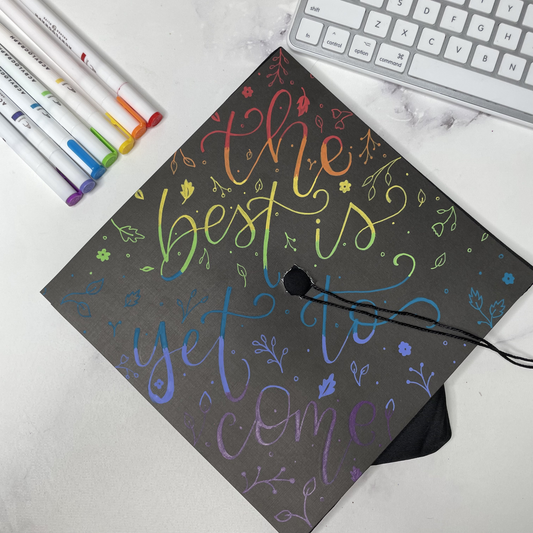 the
best is
yet to
come
shift
fn
control
option
command
Z
X
C
V
B
N
S
D
F
G
H